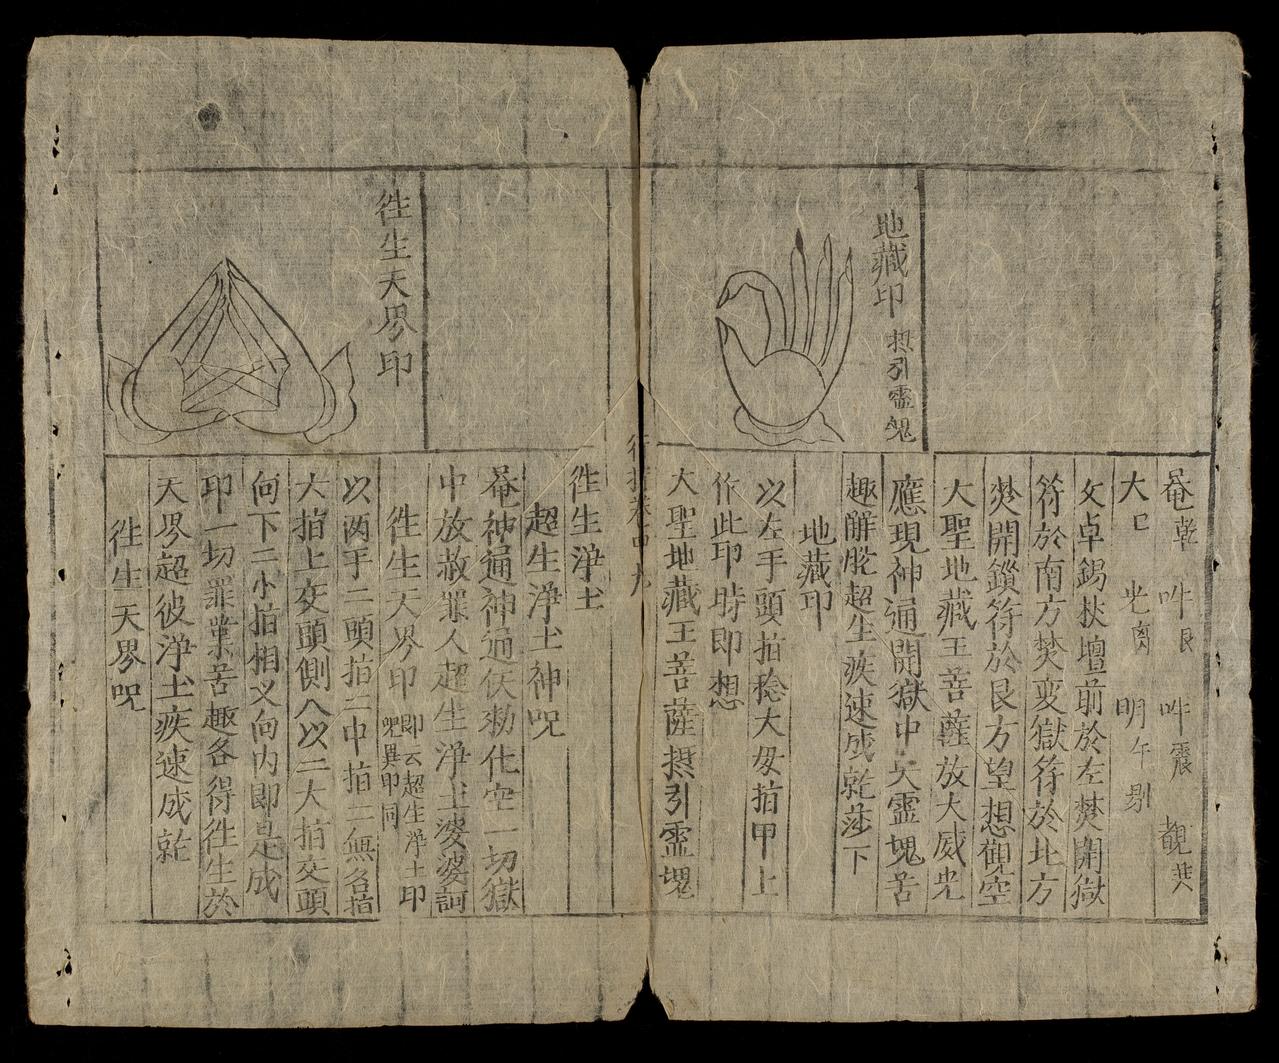 地藏印 摂引霊魂
菴乾 吽艮 吽震 觀巽
大巳 光离 明午 剔
文卓錫杖壇前於左焚開獄
符於南方焚变獄符於北方
焚開鎖符於艮方望想觀空
大聖地藏王菩薩放大威光
應現神通開獄中大霊塊苦
趣觧脫超生疾速成就莎下
地藏印
以左手頭拍捻大母拍甲上
作此印時即想
大聖地藏王菩薩摂引霊塊
徃生天界印
徃生淨土
超生淨土神呪
菴神通神通仸勑化空一切獄
中放赦罪人超生淨土婆婆訶
徃生天界印 即云超生淨土印
呪異印同
以两手二頭拍二中拍二無名指
大拍上交頭側入以二大拍交頭
向下二小拍相义向内即是成
印一切罪業苦趣各得徃生於
天界超彼淨土疾速成就
徃生天界呪